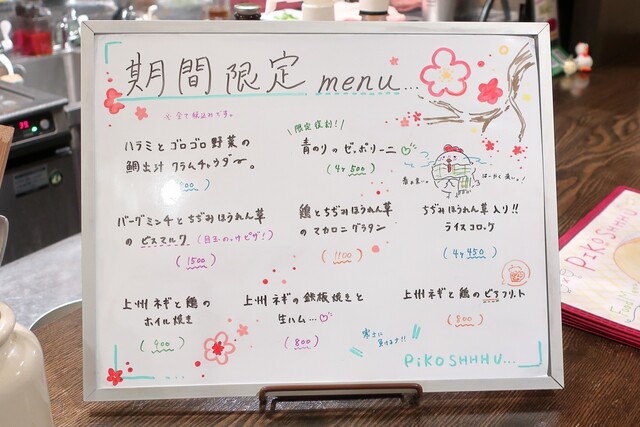 期間限定 menu...
※全て税込みです。
ハラミとゴロゴロ野菜の
鯛出汁クラムチャウダー。
限定復刻!
青のりのゼッポリーニ
(4ヶ 500)
バーグミンチとちぢみほうれん草
のビスマルク (目玉のっけピザ!)
(1500)
鶏とちぢみほうれん草
のマカロニグラタン
(1100)
ちぢみほうれん草入り!!
ライスコロッケ
(4ヶ 450)
上州ネギと鶏の
ホイル焼き
(900)
上州ネギの鉄板焼きと
生ハム...
(800)
上州ネギと鶏のピリフリット
(800)
寒さに
負けるな!!
PiKOSHHHU...
PiKOSHHHU